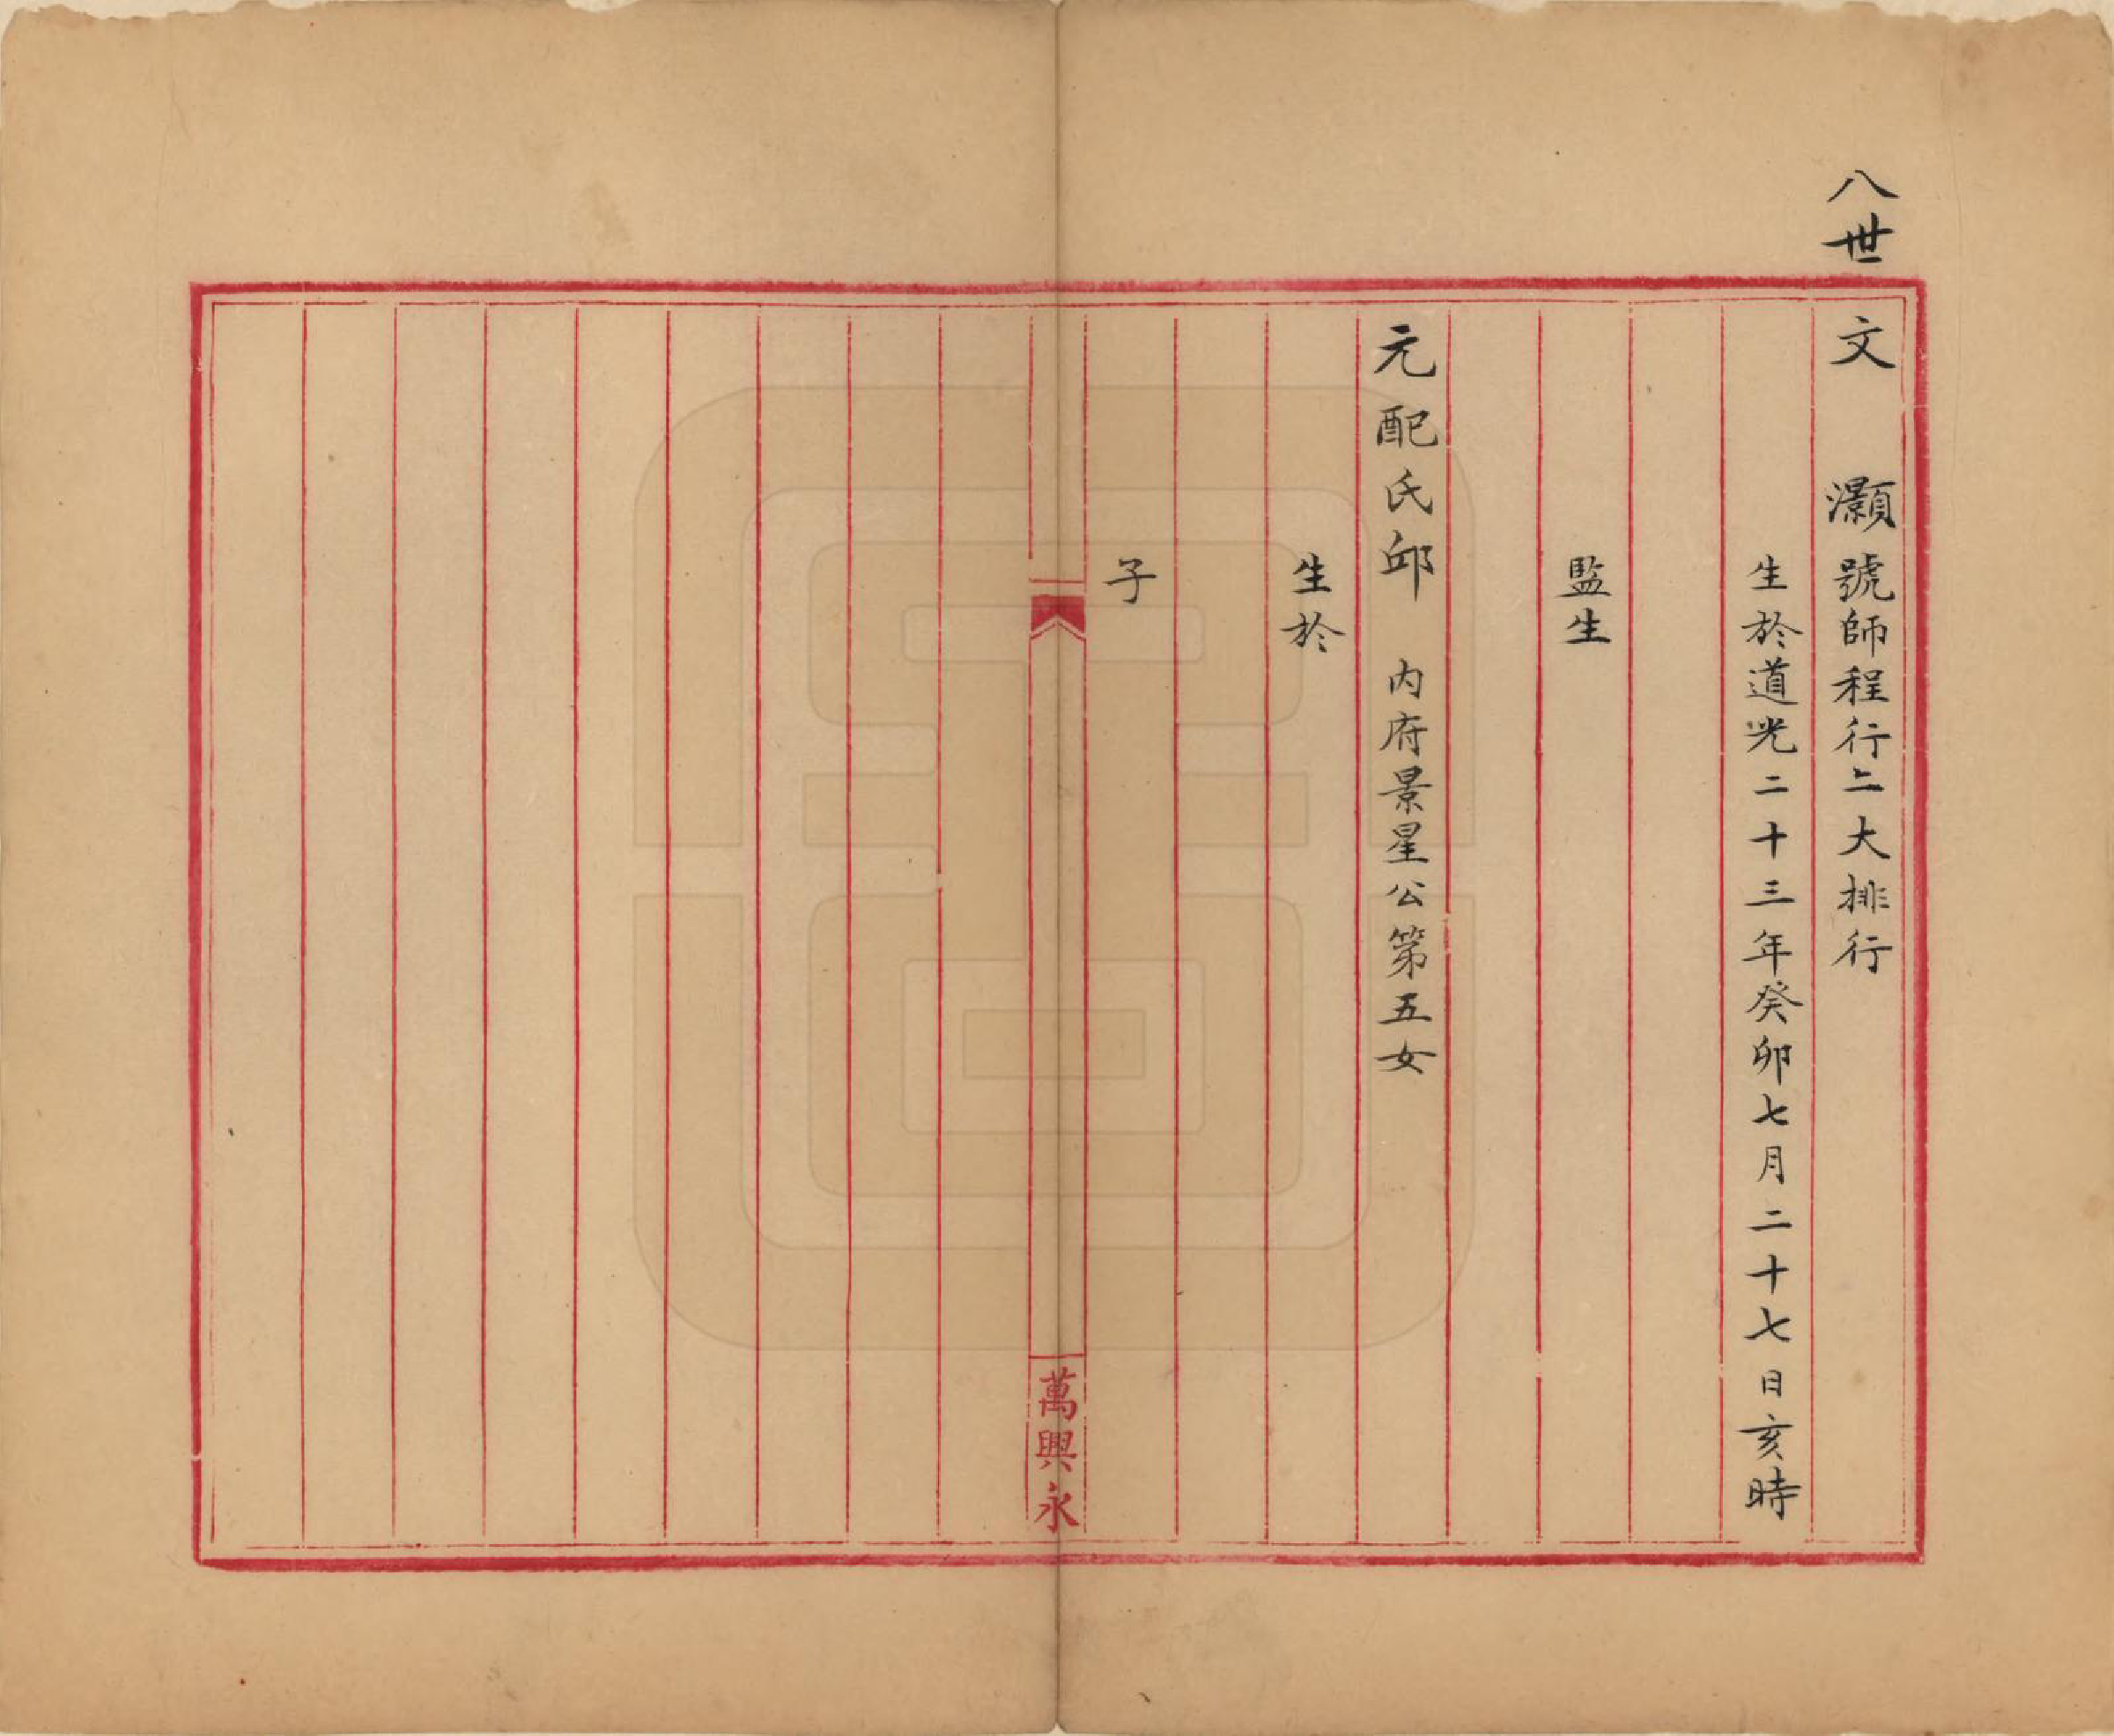 八世
文灝號師程行二大排行
生於道光二十三年癸卯七月二十七日亥時
監生
元配氏邱 内府景星公第五女
生於
子
萬興永